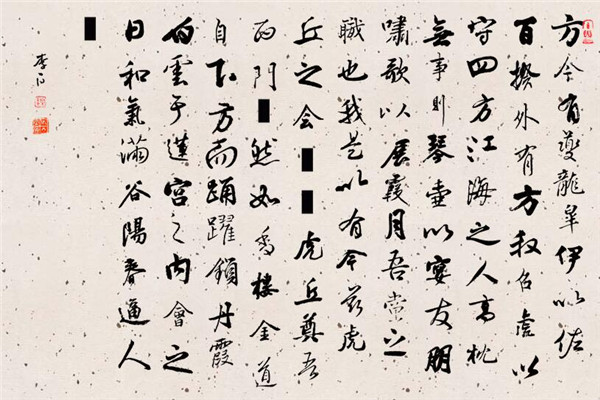 方今有夔龍皋伊以佐
百揆外有方叔召虎以
守四方江海之人高枕
無事則琴壺以宴友朋
嘯歌以展霞月吾之
職也我是以有今茲虎
丘之會虎丘奠吾
西門然如香樓金道
自下方而踊躍鎖丹霞
白雲于蓮宮之内會之
日和氣滿谷陽春逼人